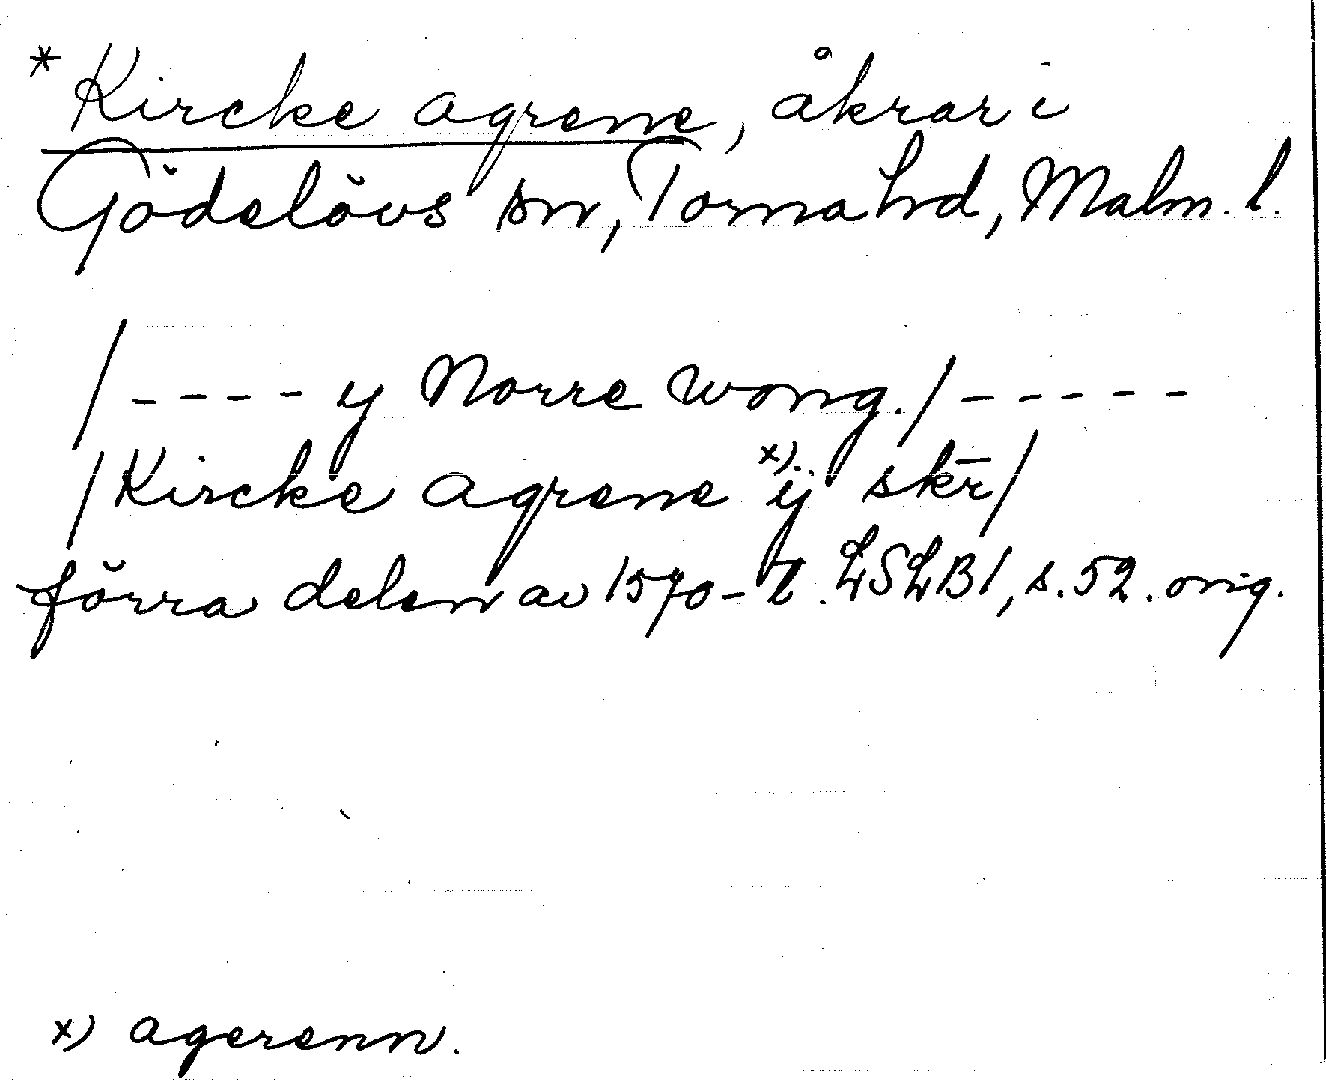 * Kircke agrene, åkrar i
Gödelövs sn, Torna hd, Malm. l.
/---- y Norre wong./-----
/Kircke agrene x) ij skr̄/
förra delen av 1570-t. LSLB1, s. 52. orig.
x) agerenn.